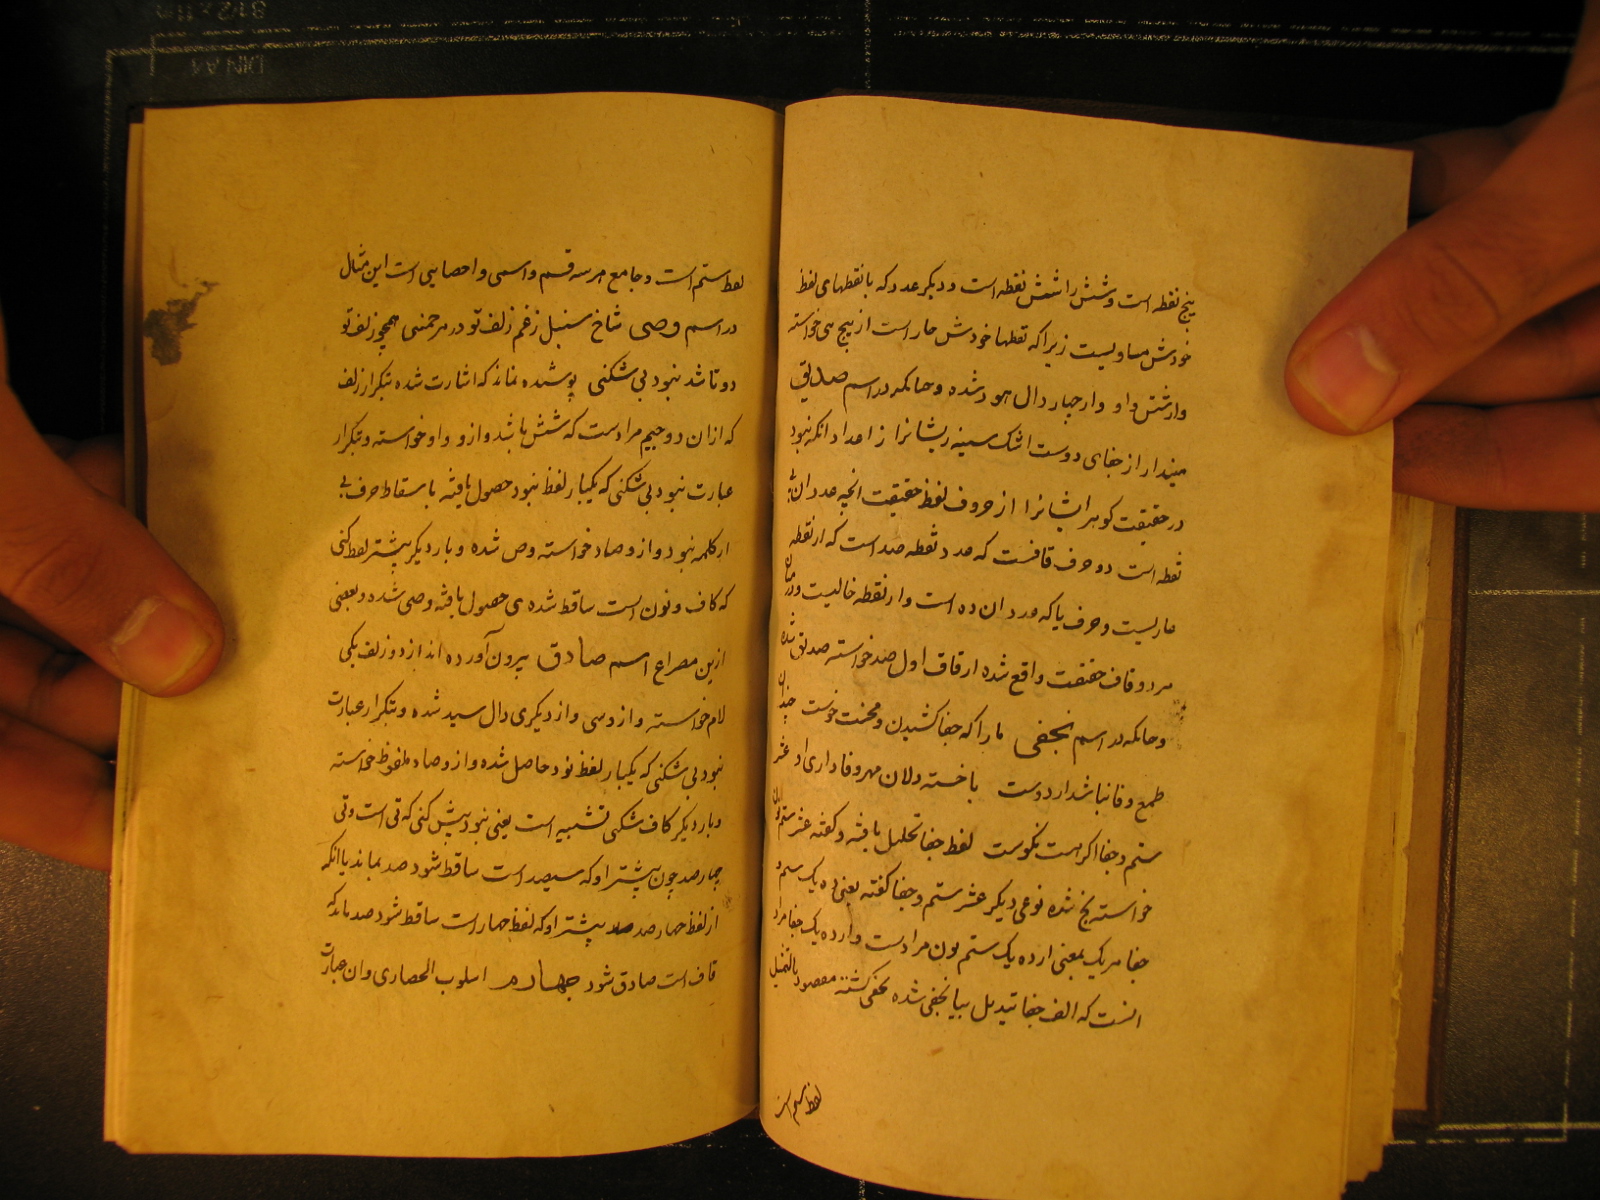 پنج نقطه است و شش را شش نقطه است و دیگر عدد که با نقطهای لفظ
خودش مساویست زیرا که نقطها خودش چار است از پنج می خواسته
و از شش واو و از چهار دال هود شده و چنانکه در اسم صدیق
میندار از جفای دوست اشک سینه ریشانرا ز اعداد انکه نبود
در حقیقت کوهر ایشانرا از حروف لفظ حقیقت انچه عدد ان بی
نقطه است دو حرف قافست که عدد نقطه صد است که از نقطه
عاریست و حرف یا که عدد ان ده است و از نقطه خالیست و در میان
هر دو قاف حقیقت واقع شده از قاف اول صد خواسته صدیق شده
و چنانکه در اسم نجفی ما را که جفا کشیدن و محنت خوست چندان
طمع وفا نباشد از دوست با خسته دلان مهر و وفاداری او عشر
ستم و جفا اگر هست نکوست لفظ جفا تحلیل یافته و گفته عشر ستم و ازان
خواسته نج شده نوعی دیگر عشر ستم و جفا گفته یعنی ده یک ستم و
جفا هر یک بمعنی از ده یک ستم نون مرادست و از ده یک جفا مراد
انست که الف جفا تبدیل بیا نجفی شده نجفی گشته مقصود بالتمثیل
لفظ ستم است
لفظ ستم است و جامع هر سه قسم و اسمی و احصایی است این مثال
در اسم وصی شاخ سنبل زغم زلف تو در هر چمنی همچو زلف تو
دو تا شد نبود بی شکنی پوشیده نماند که اشارت شده بتکرار زلف
که از ان دو جیم مرادست که شش باشد و از و واو خواسته و بتکرار
عبارت نبود بی شکنی که یکبار لفظ نبود حصول یافته باسقاط حرف بی
از کلمه نبود و از و صاد خواسته وص شده و بار دیگر پیشتر لفظ کنی
که کاف و نون است ساقط شده ی حصول یافته وصی شده و بعضی
ازین مصراع اسم صادق بیرون آورده اند از دو زلف یکی
لام خواسته و از و سی و از دیگری دال سید شده و بتکرار عبارت
نبود بی شکنی که یکبار لفظ نود حاصل شده و از و صاد ملفوظ خواسته
و بار دیگر کاف شکنی تشبیه است یعنی نبود بیش کنی که تی است و تی
چهارصد چون پیشتر او که سیصد است ساقط شود صد بماند یا انکه
از لفظ چهار صد صد پیشتر او که لفظ چهار است ساقط شود صد ماند که
قاف است صادق شود چهارم اسلوب الحصاری و ان عبارت